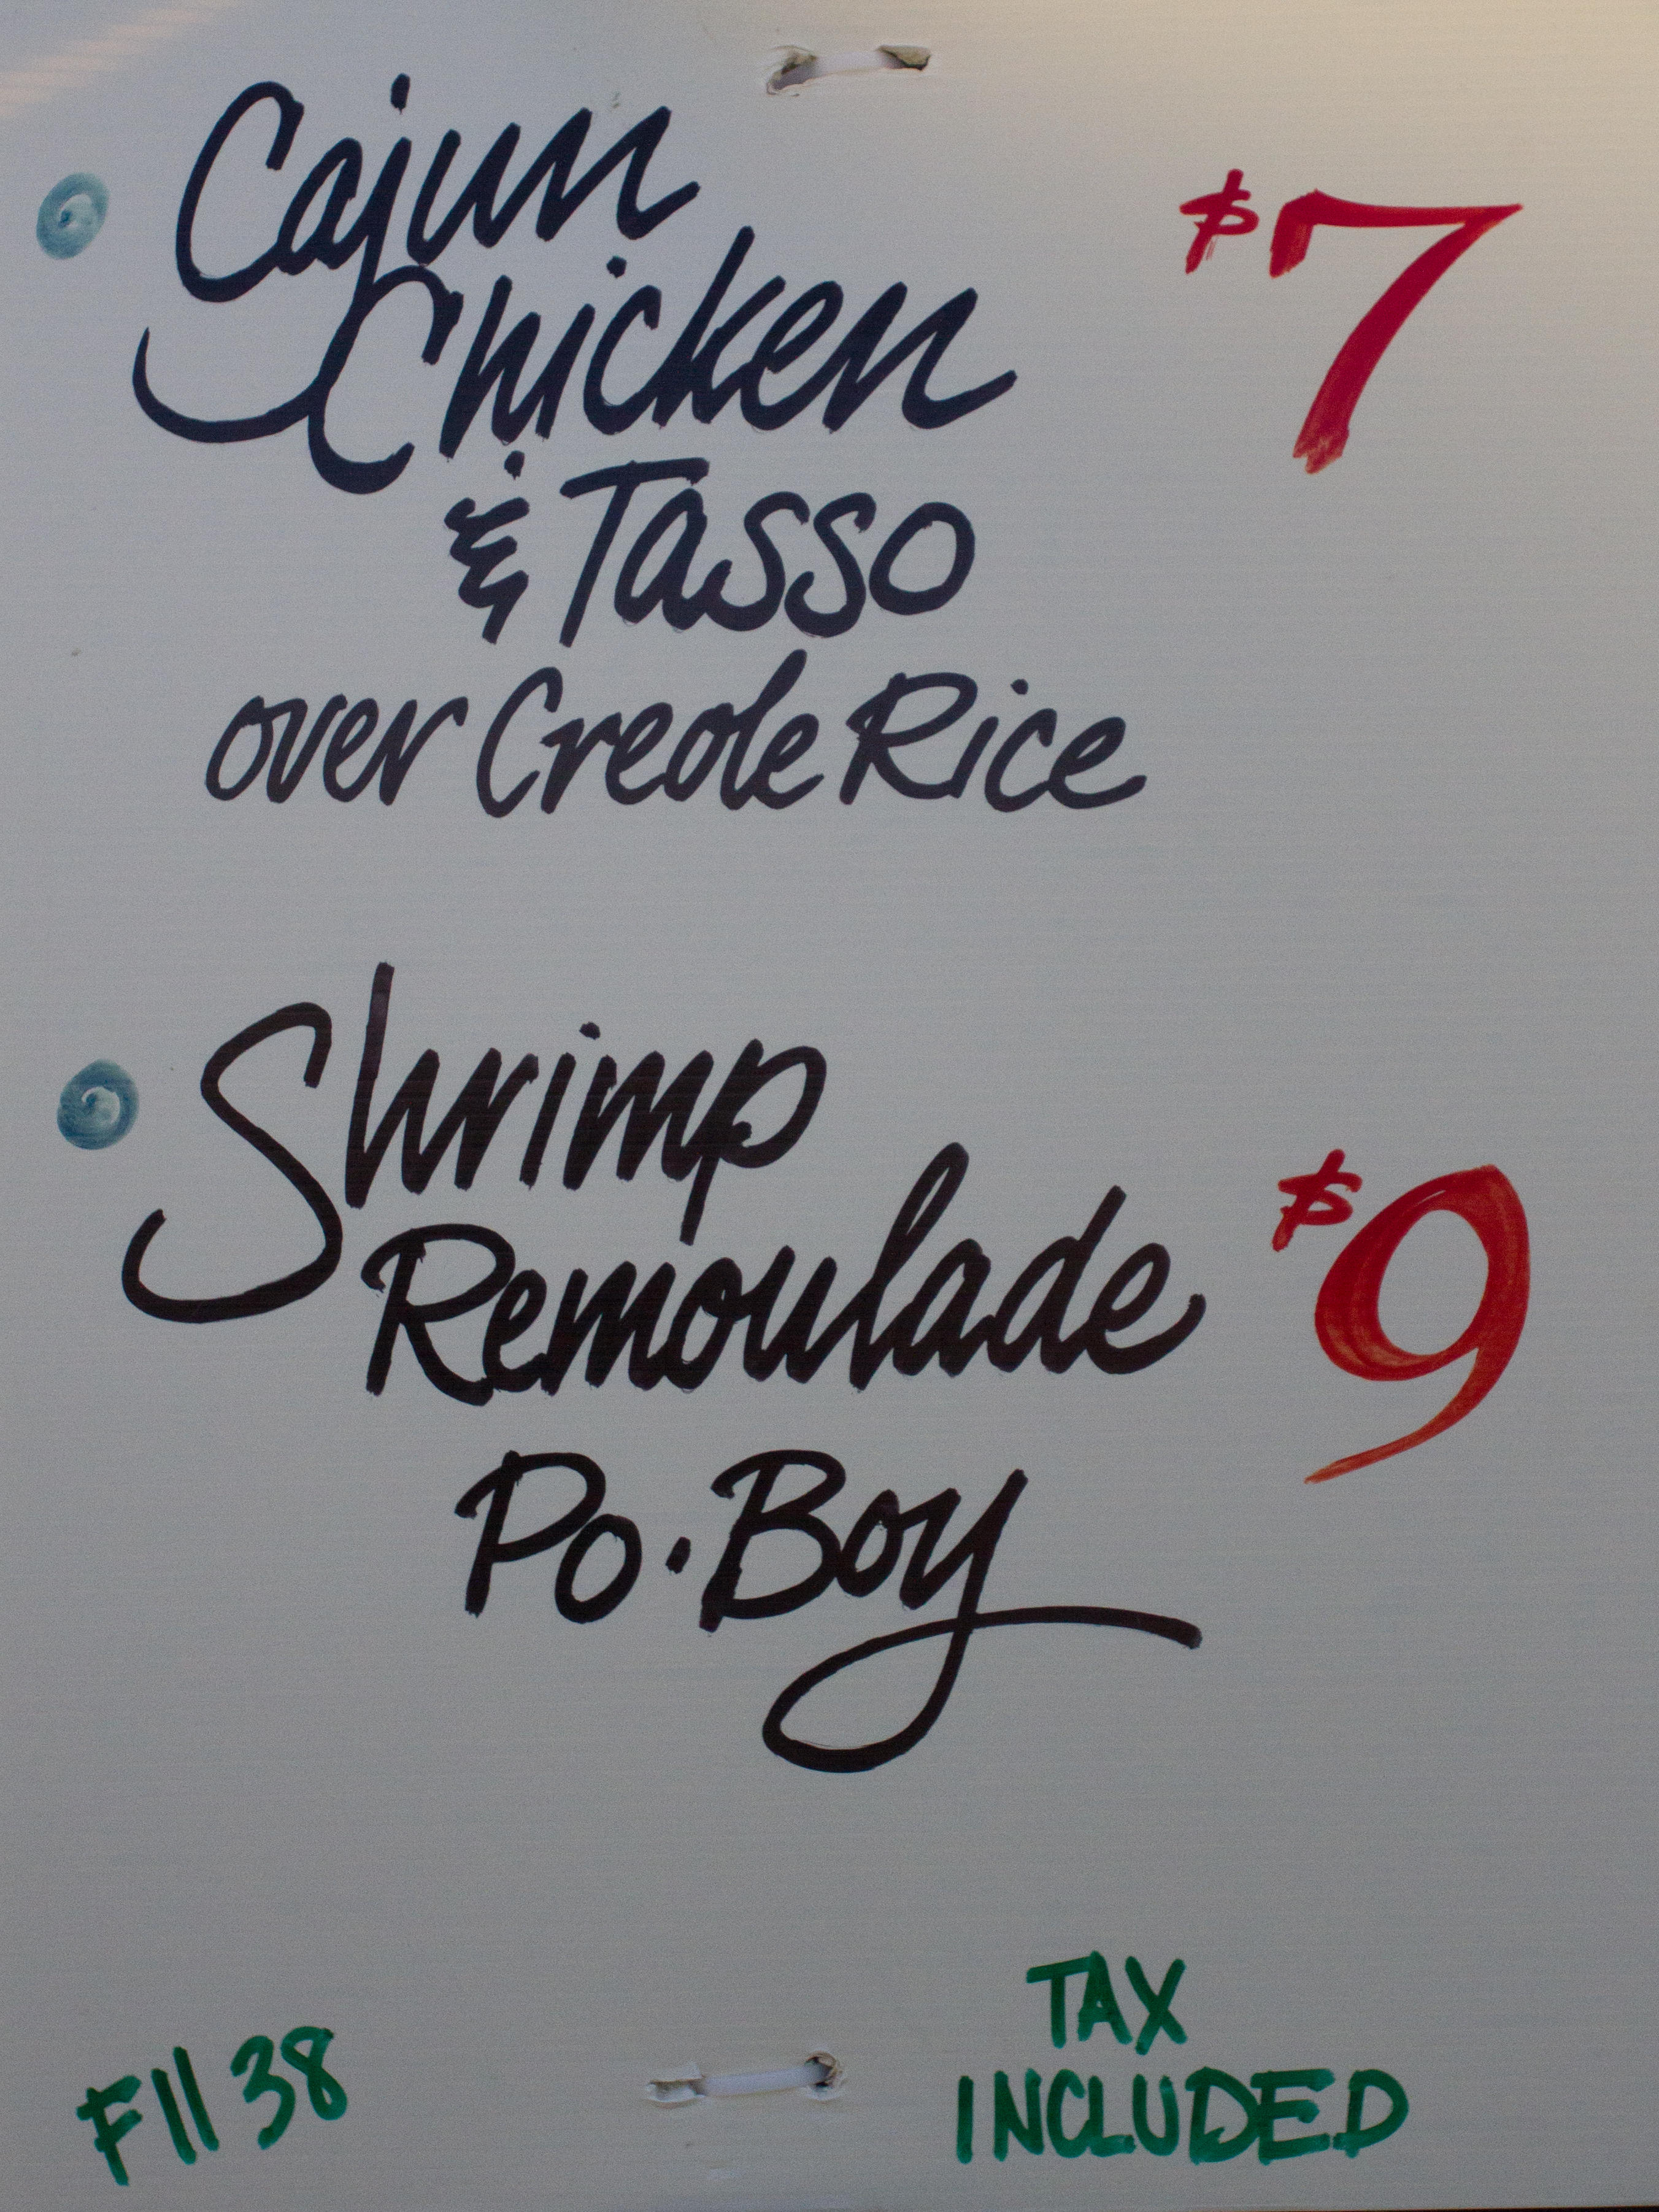 Cajun $7
Chicken
& Tasso
over Creole Rice
Shrimp
Remoulade $9
Po·Boy
TAX
F11 38
INCLUDED